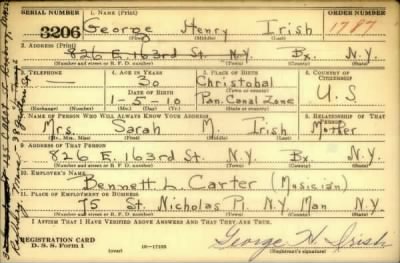 SERIAL NUMBER 1. NAME (Print) ORDER NUMBER
3206 George Henry Irish 1787
(First) (Middle) (Last)
2. ADDRESS (Print)
826 E. 163rd St. N.Y. Bx. N.Y.
(Number and street or R. F. D. number) (Town) (County) (State)
3. TELEPHONE 4. AGE IN YEARS 5. PLACE OF BIRTH 6. COUNTRY OF CITIZENSHIP
30 Christobal
DATE OF BIRTH (Town or county)
1-5-10 Pan. Canal Zone U.S.
(Exchange) (Number) (Mo.) (Day) (Yr.) (State or country)
7. NAME OF PERSON WHO WILL ALWAYS KNOW YOUR ADDRESS 8. RELATIONSHIP OF THAT PERSON
Mrs. Sarah M. Irish Mother
(Mr., Mrs., Miss) (First) (Middle) (Last)
9. ADDRESS OF THAT PERSON
826 E. 163rd St. N.Y. Bx N.Y.
(Number and street or R. F. D. number) (Town) (County) (State)
10. EMPLOYER'S NAME
Bennett L. Carter (Musician)
11. PLACE OF EMPLOYMENT OR BUSINESS
75 St. Nicholas Pl. N.Y. Man N.Y.
(Number and street or R. F. D. number) (Town) (County) (State)
I AFFIRM THAT I HAVE VERIFIED ABOVE ANSWERS AND THAT THEY ARE TRUE.
REGISTRATION CARD
D. S. S. Form 1 (over) 16—17105 George H. Irish
(Registrant's signature)